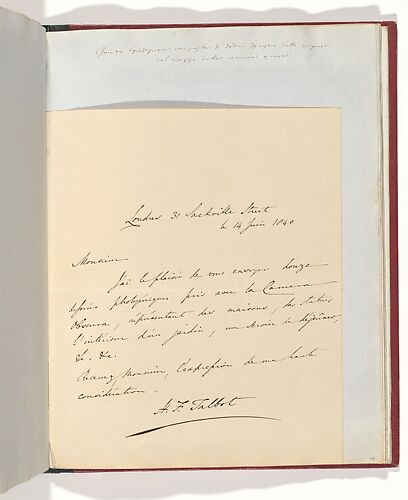 Questa spedizione composta di dodici disegni fatti
col mezzo della camera oscura.
Londres 31 Sackville Street
le 14 Juin 1840
Monsieur
J'ai le plaisir de vous envoyer douze
dessins photogéniques pris avec la Camera
Obscura, représentant des maisons, des statues
l'intérieur d'un jardin, un service de déjeuner,
&c. &c.
Recevez, Monsieur, l'expression de ma haute
considération.
H. F. Talbot